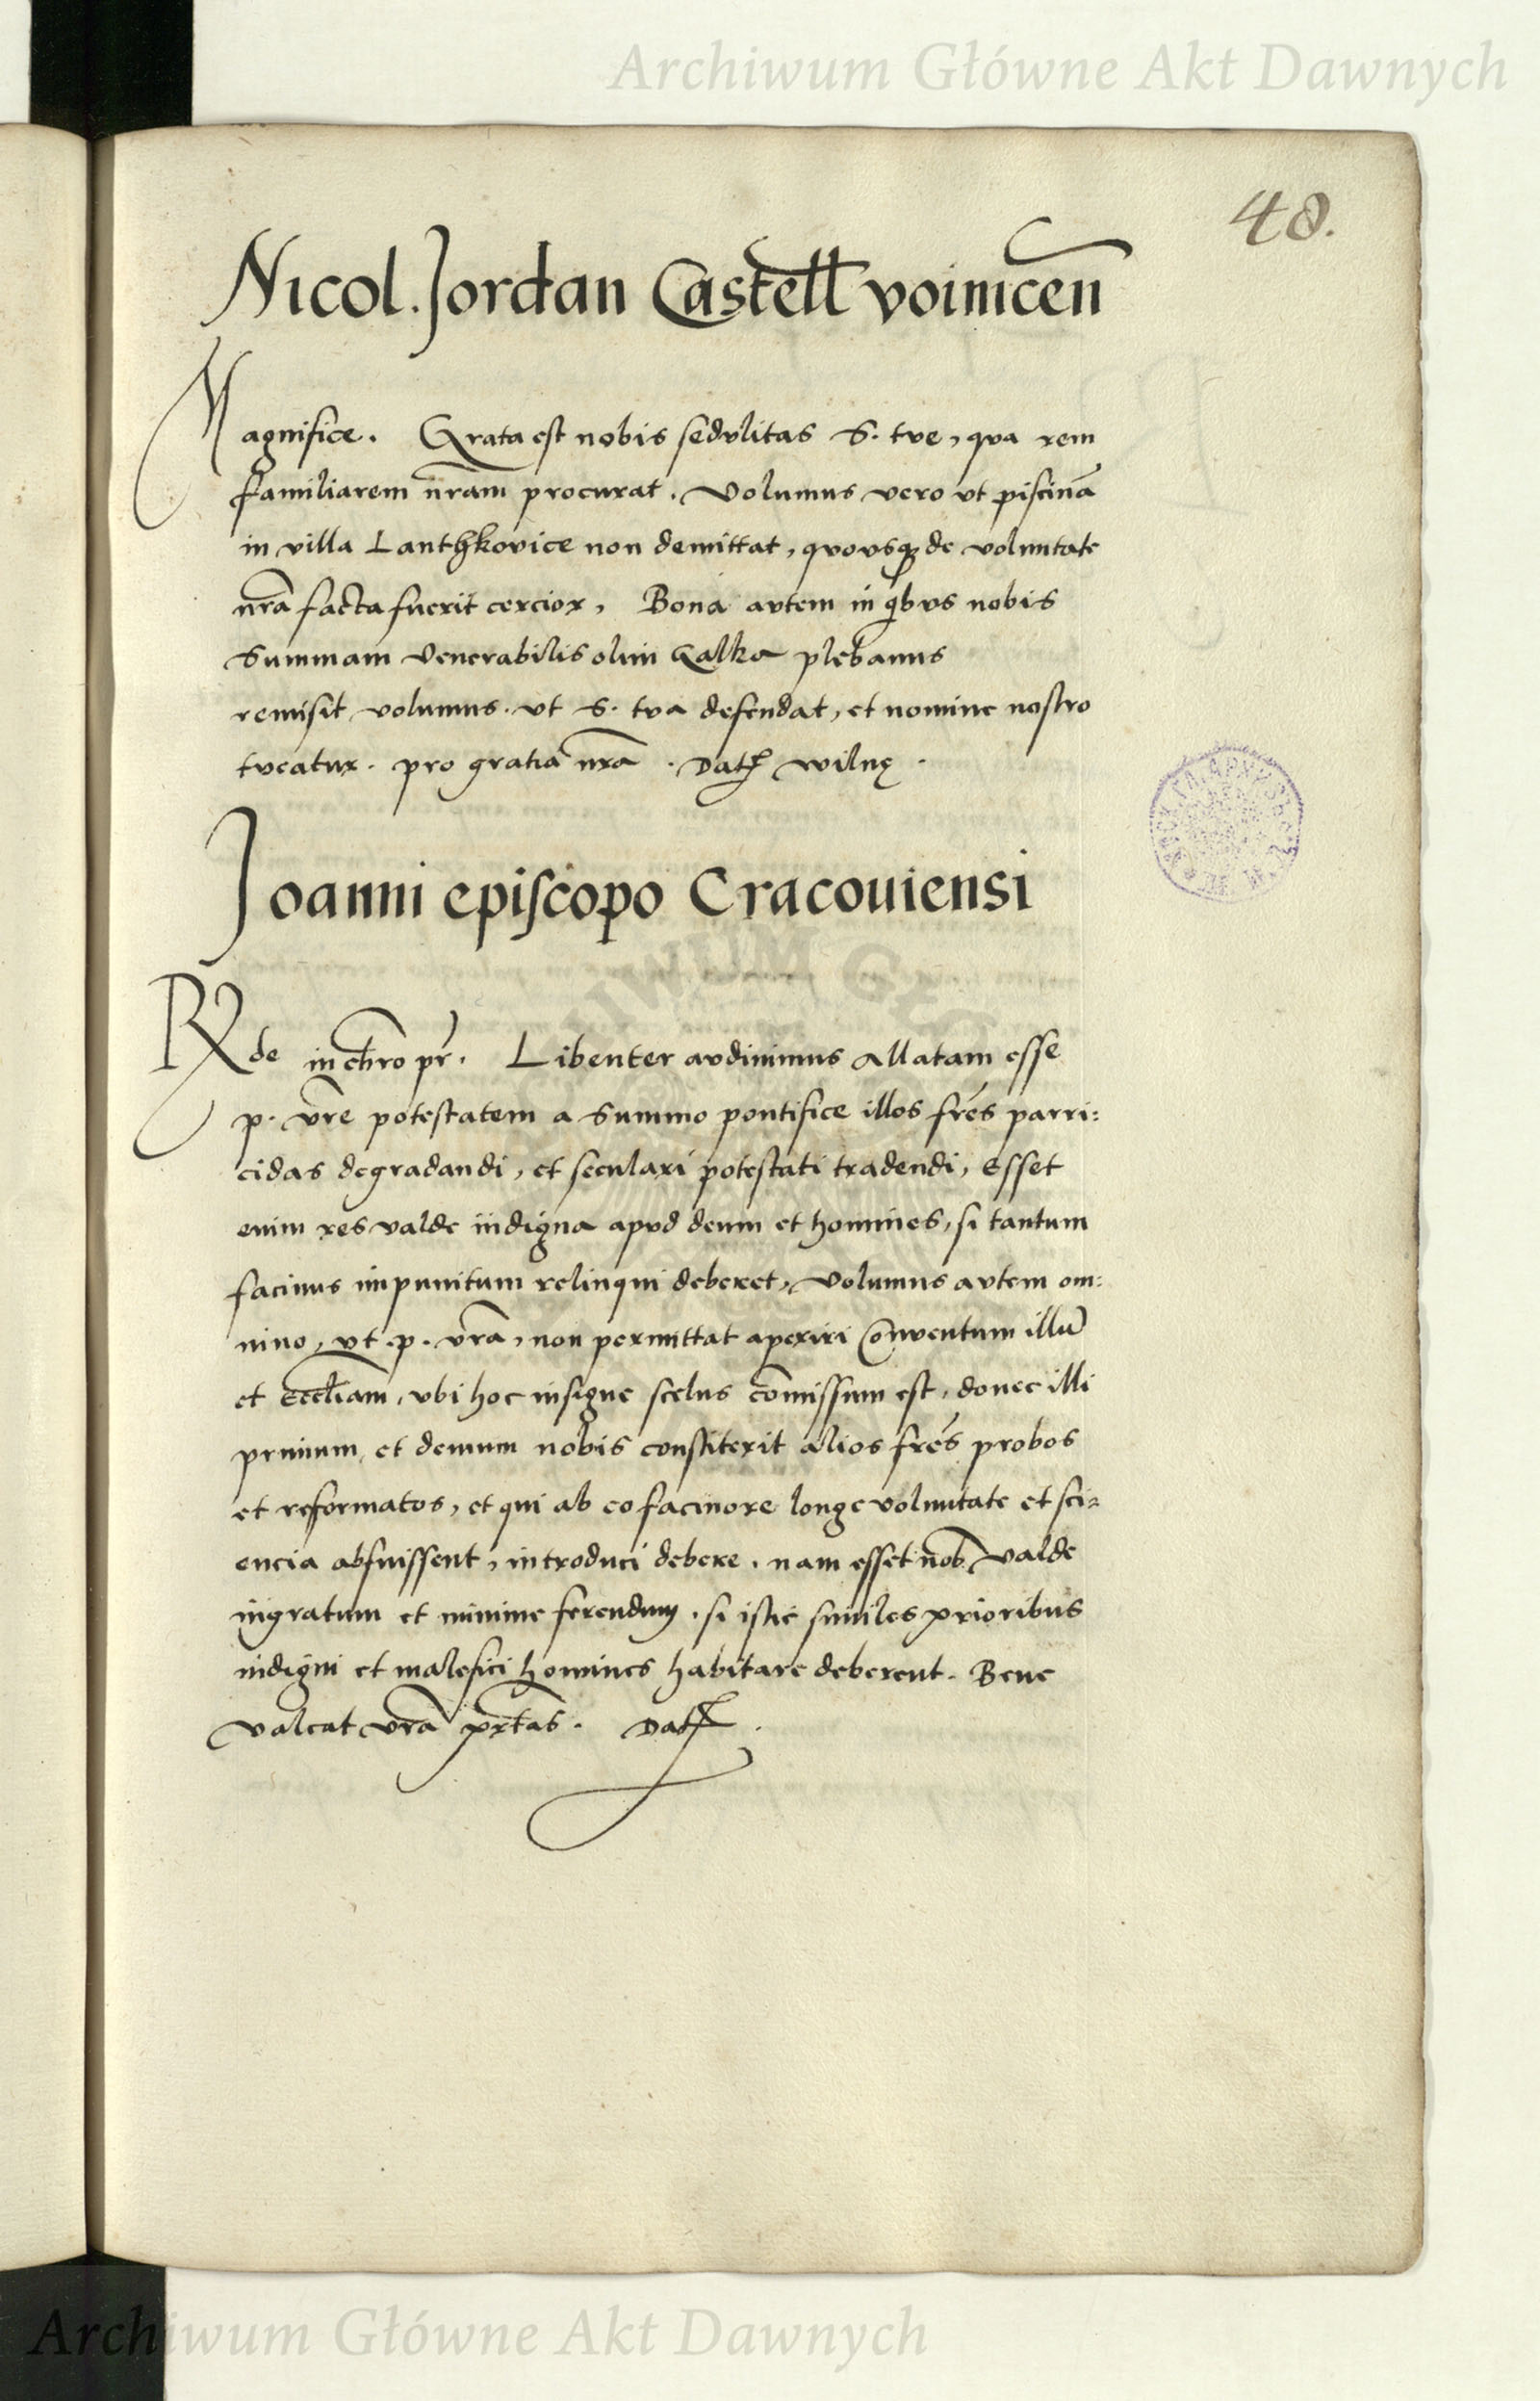 Archiwum Główne Akt Dawnych
48.
Nicol. Jordan Castell voinicen̄
Magnifice. Grata est nobis sedvlitas S. tve, qva rem
familiarem nr̄am procurat. Volumus vero vt piscinā
in villa Lanthkovice non demittat, qvovsqꝫ de voluntate
nr̄a facta fuerit cercior, Bona avtem in qbvs nobis
Summam Venerabilis olim Galka plebanus
remisit volumus. vt S. tva defendat, et nomine nostro
tveatur. pro gratia nr̄a. Datꝭ wilnę.
Joanni episcopo Cracouiensi
Rde in chr̄o pr̄. Libenter avdivimus allatam esse
p. vr̄e potestatem a Summo pontifice illos fr̄es parri:
cidas degradandi, et seculari potestati tradendi, Esset
enim res valde indigna apvd deum et homines, si tantum
facinus impunitum relinqui deberet, Volumus avtem om:
nino, vt .p. vr̄a, non permittat aperiri Conventum illū
et eccl̄iam, vbi hoc insigne scelus com̄issum est, donec illi
primum, et demum nobis constiterit alios fr̄es probos
et reformatos, et qui ab eo facinore longe voluntate et sci=
encia abfuissent, introduci debere. nam esset nob̄ valde
ingratum et minime ferendum, si istic similes prioribus
indigni et malefici homines habitare deberent. Bene
Valeat vr̄a pr̄tas. Datꝭ.
Archiwum Główne Akt Dawnych